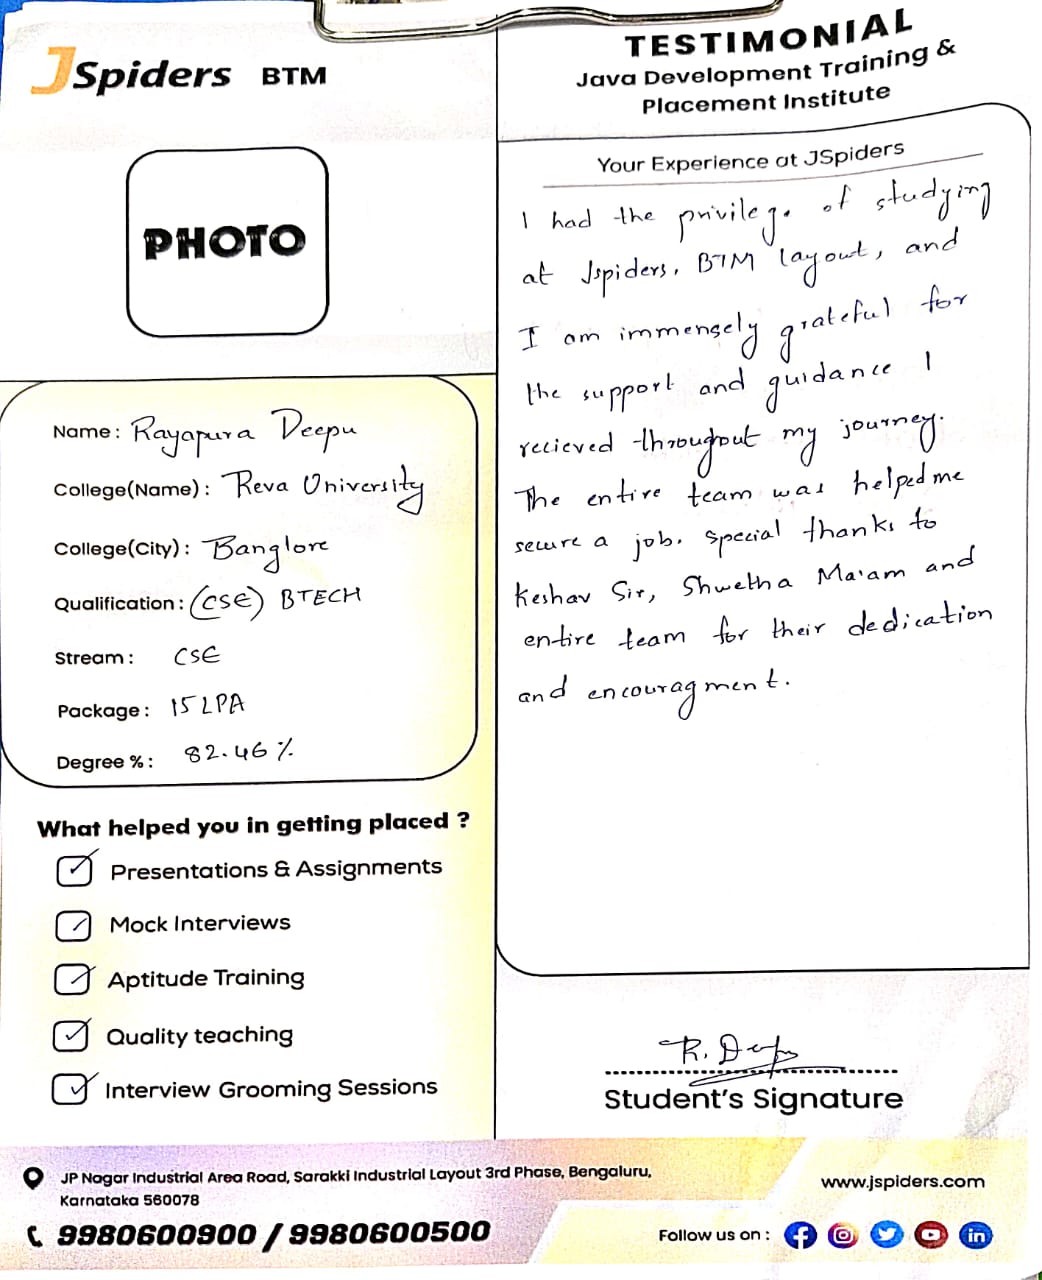 JSpiders BTM
PHOTO
Name : Rayapura Deepu
College(Name) : Reva University
College(City) : Banglore
Qualification : (CSE) BTECH
Stream : CSE
Package : 15 LPA
Degree % : 82.46 %
What helped you in getting placed ?
Presentations & Assignments
Mock Interviews
Aptitude Training
Quality teaching
Interview Grooming Sessions
TESTIMONIAL
Java Development Training &
Placement Institute
Your Experience at JSpiders
I had the privilege of studying
at Jspiders, BTM layout, and
I am immensely grateful for
the support and guidance I
recieved throughout my journey.
The entire team was helped me
secure a job. special thanks to
Keshav Sir, Shwetha Ma'am and
entire team for their dedication
and encouragment.
R. Deepu
Student's Signature
JP Nagar Industrial Area Road, Sarakki Industrial Layout 3rd Phase, Bengaluru,
Karnataka 560078
9980600900 / 9980600500
www.jspiders.com
Follow us on :